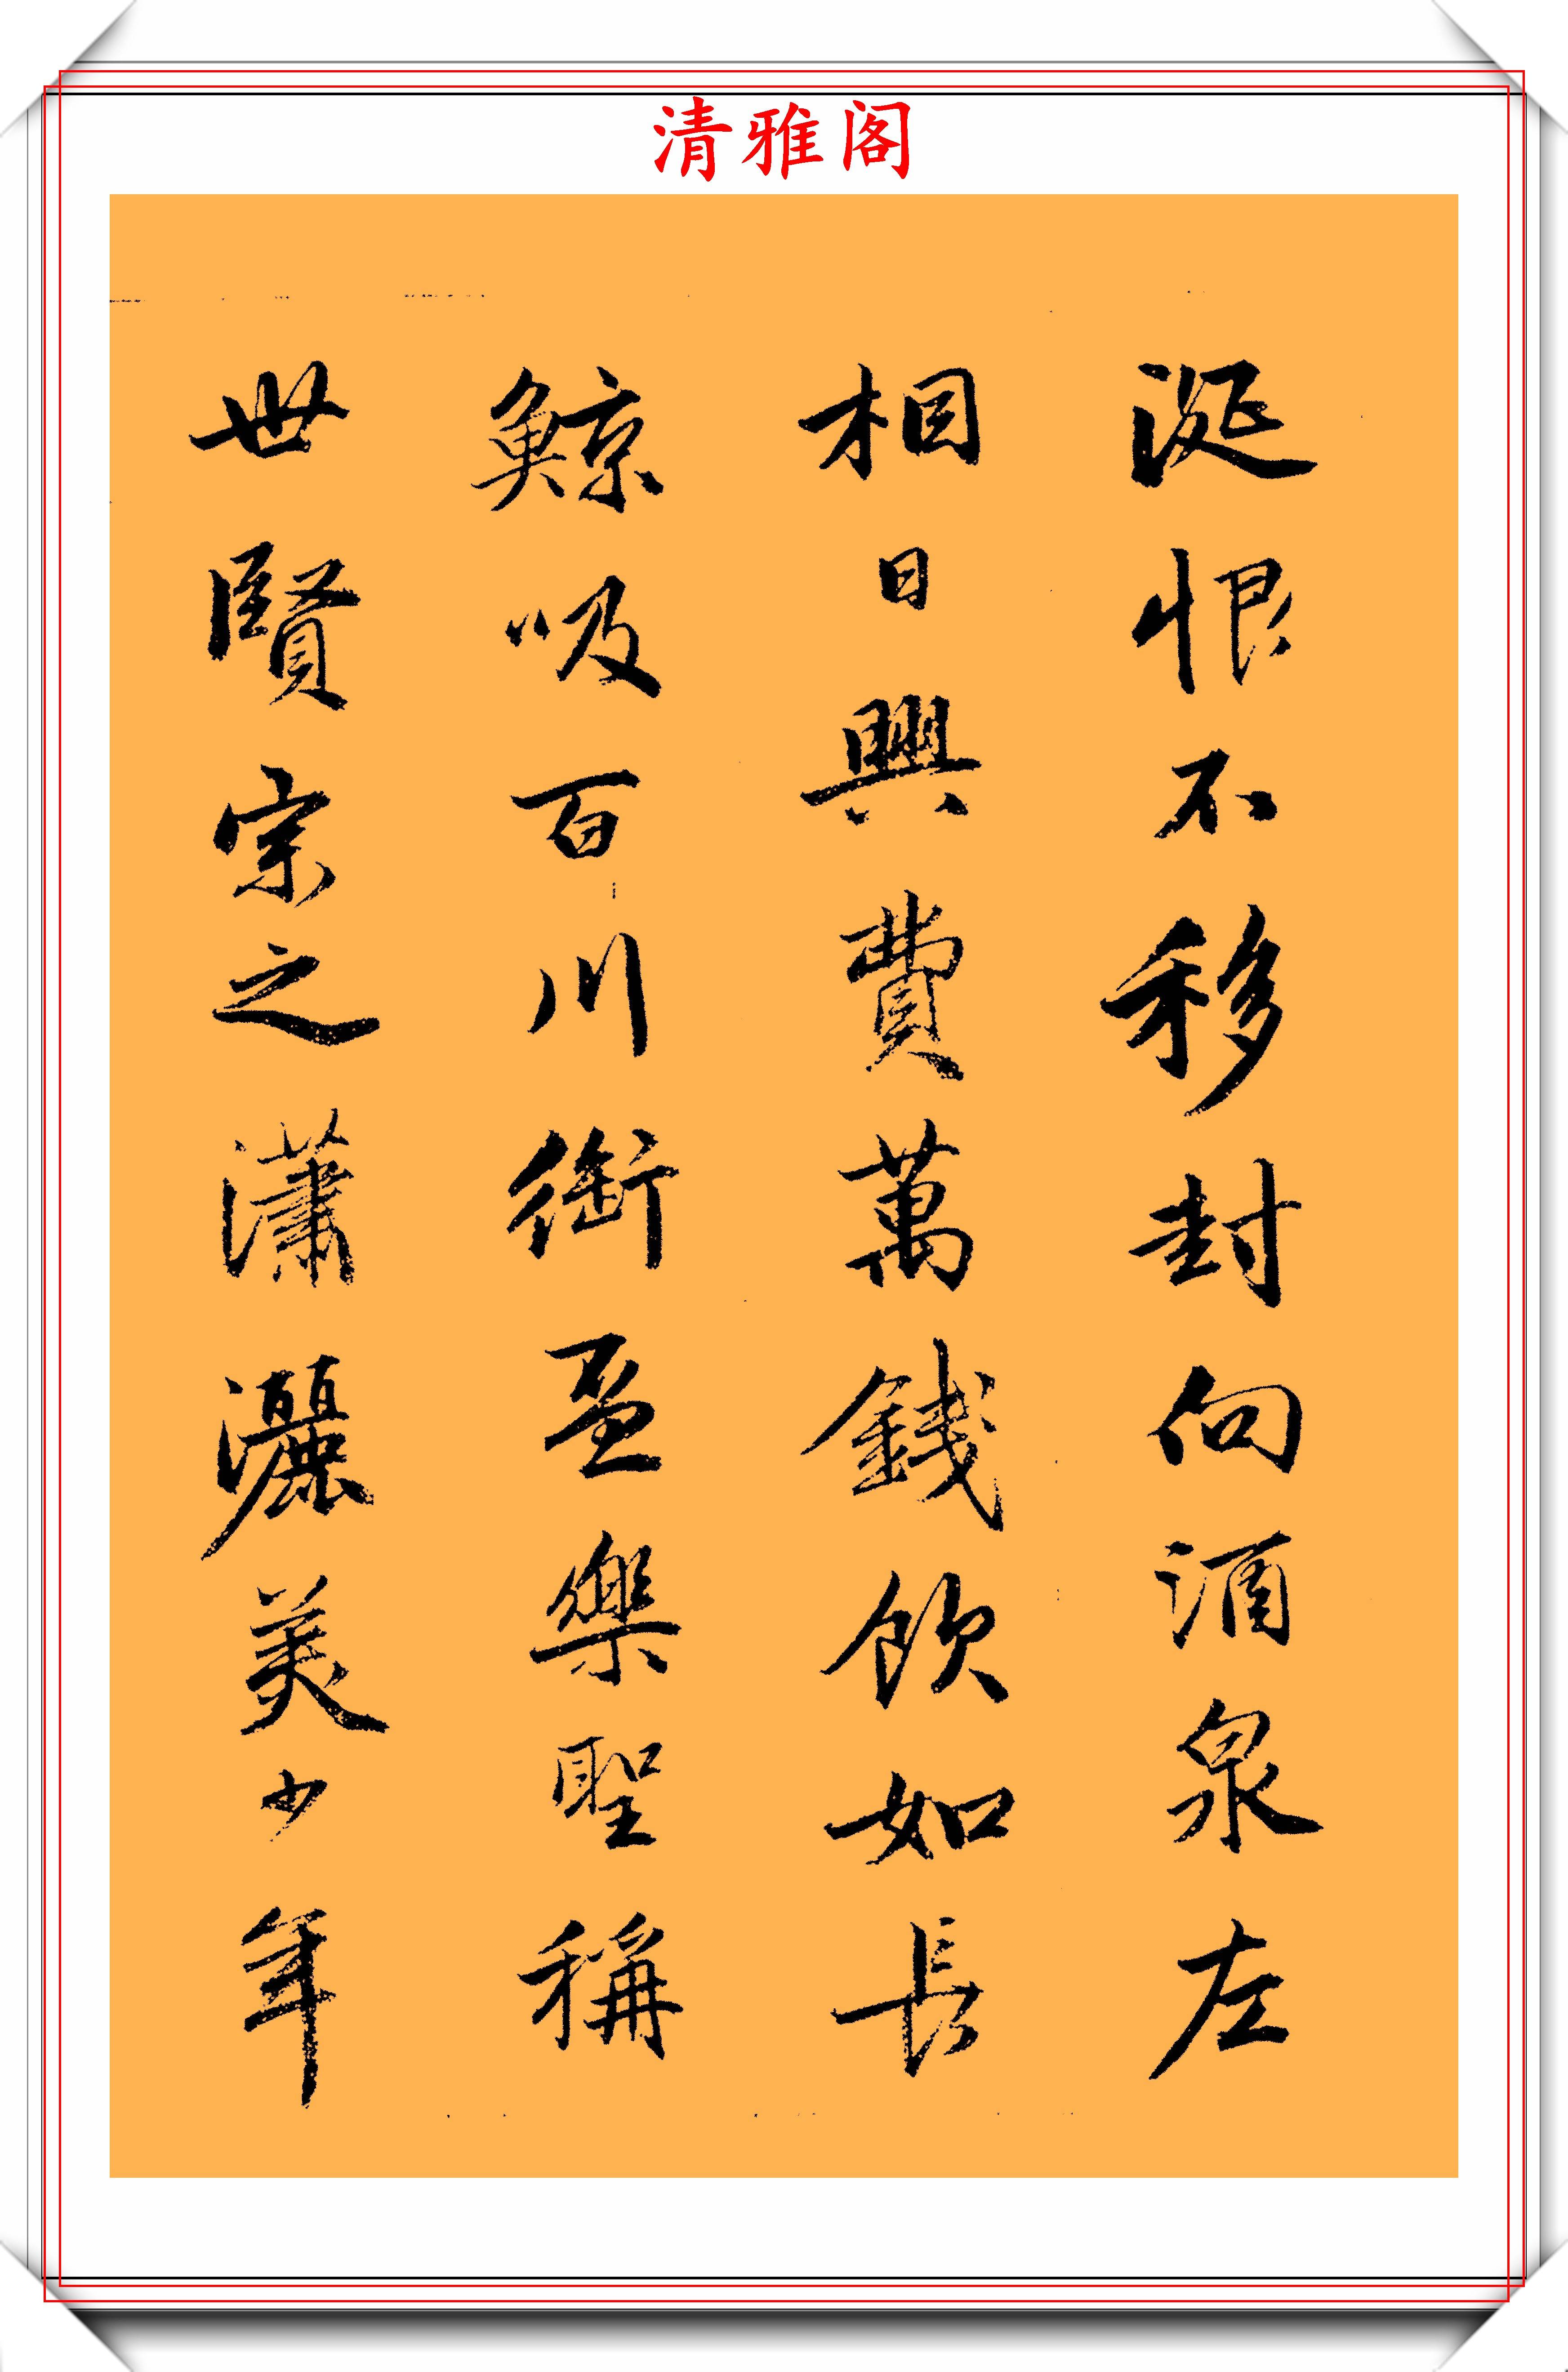 清雅阁
涎恨不移封向酒泉左
相日興費萬錢飲如長
鯨吸百川銜盃樂聖稱
世賢宗之瀟灑美少年